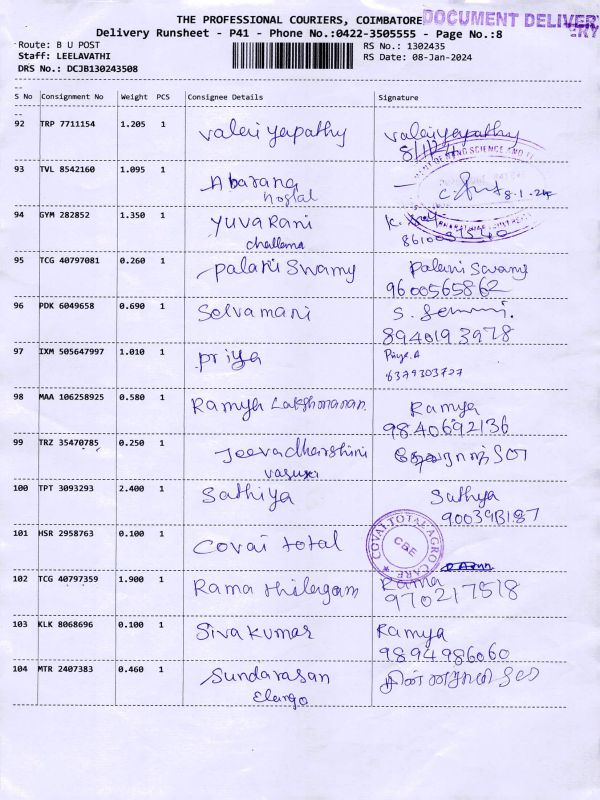 THE PROFESSIONAL COURIERS, COIMBATORE DOCUMENT DELIVERY
Delivery Runsheet - P41 - Phone No.:0422-3505555 - Page No.:8
Route: B U POST RS No.: 1302435
Staff: LEELAVATHI RS Date: 08-Jan-2024
DRS No.: DCJB130243508
S No Consignment No Weight PCS Consignee Details Signature
92 TRP 7711154 1.205 1 Valaiyapathy Valaiyapathy
93 TVL 8542160 1.095 1 Abarang 8.1.24
hostal
94 GYM 282852 1.350 1 Yuva Rani
challama
95 TCG 40797081 0.260 1 Palani Swamy Palani Swamy
9600565862
96 PDK 6049658 0.690 1 Selvamani
8940193978
97 IXM 505647997 1.010 1 Priya Priya.A
6379303727
98 MAA 106258925 0.580 1 Ramya Lakshmanan Ramya
9840692136
99 TRZ 35470785 0.250 1 Jeevadharshini
100 TPT 3093293 2.400 1 Sathiya Sathya
101 HSR 2958763 0.100 1 Covai total COVAI TOTAL AGRO CARE
CBE
102 TCG 40797359 1.900 1 Rama thilagam Rama
970217518
103 KLK 8068696 0.100 1 Siva kumar Ramya
9894986060
104 MTR 2407383 0.460 1 Sundarasan
Elango